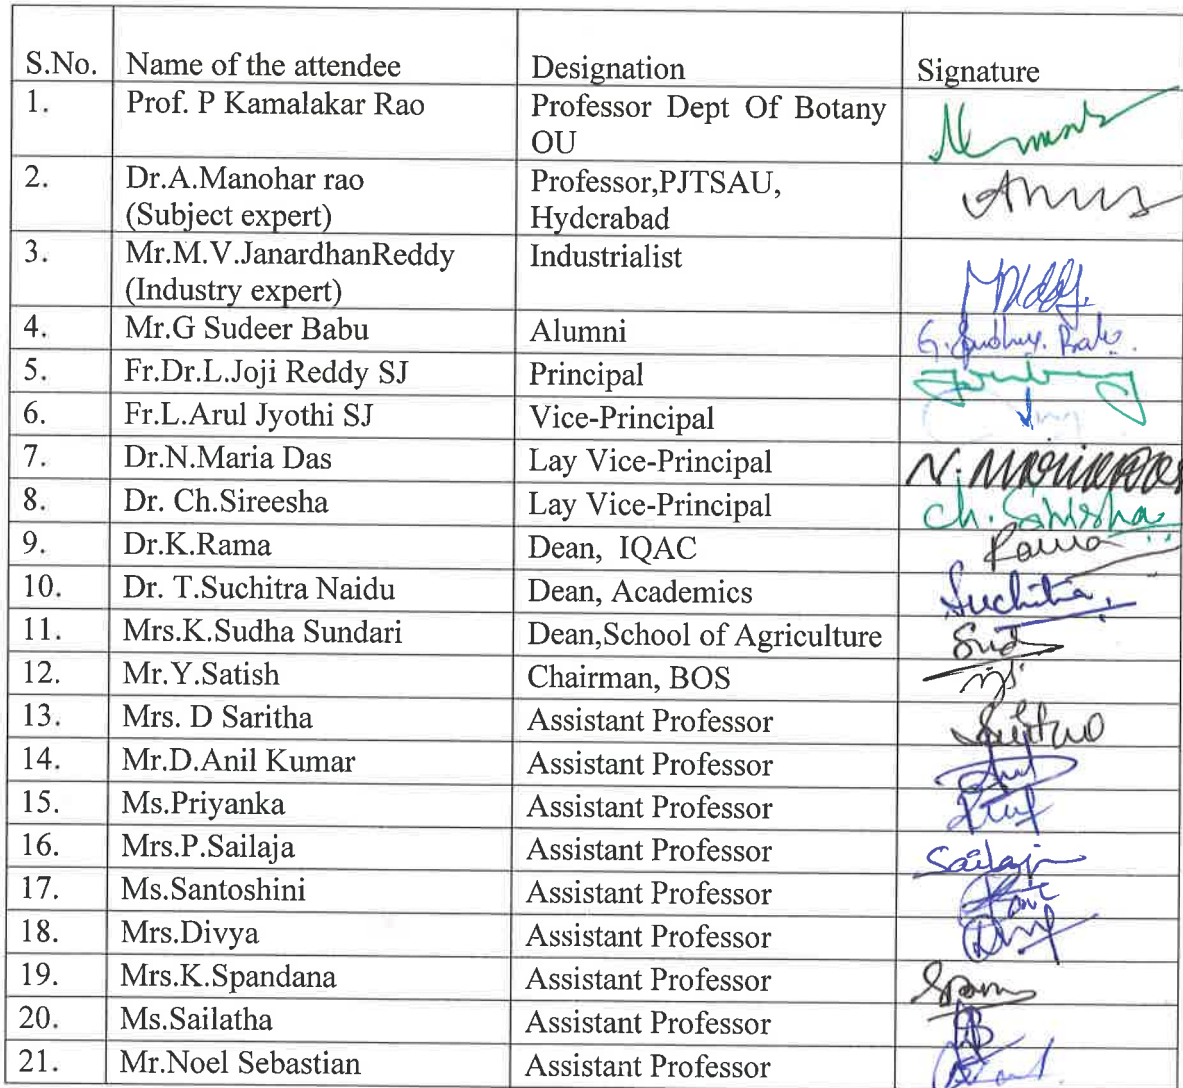 S.No. Name of the attendee Designation Signature
1. Prof. P Kamalakar Rao Professor Dept Of Botany
OU
2. Dr.A.Manohar rao Professor,PJTSAU,
(Subject expert) Hyderabad
3. Mr.M.V.JanardhanReddy Industrialist
(Industry expert)
4. Mr.G Sudeer Babu Alumni G. Sudhir Babu.
5. Fr.Dr.L.Joji Reddy SJ Principal
6. Fr.L.Arul Jyothi SJ Vice-Principal
7. Dr.N.Maria Das Lay Vice-Principal N. MARIADAS
8. Dr. Ch.Sireesha Lay Vice-Principal Ch. Sirisha
9. Dr.K.Rama Dean, IQAC Rama
10. Dr. T.Suchitra Naidu Dean, Academics Suchitra
11. Mrs.K.Sudha Sundari Dean,School of Agriculture
12. Mr.Y.Satish Chairman, BOS
13. Mrs. D Saritha Assistant Professor
14. Mr.D.Anil Kumar Assistant Professor
15. Ms.Priyanka Assistant Professor
16. Mrs.P.Sailaja Assistant Professor Sailaja
17. Ms.Santoshini Assistant Professor
18. Mrs.Divya Assistant Professor
19. Mrs.K.Spandana Assistant Professor
20. Ms.Sailatha Assistant Professor
21. Mr.Noel Sebastian Assistant Professor